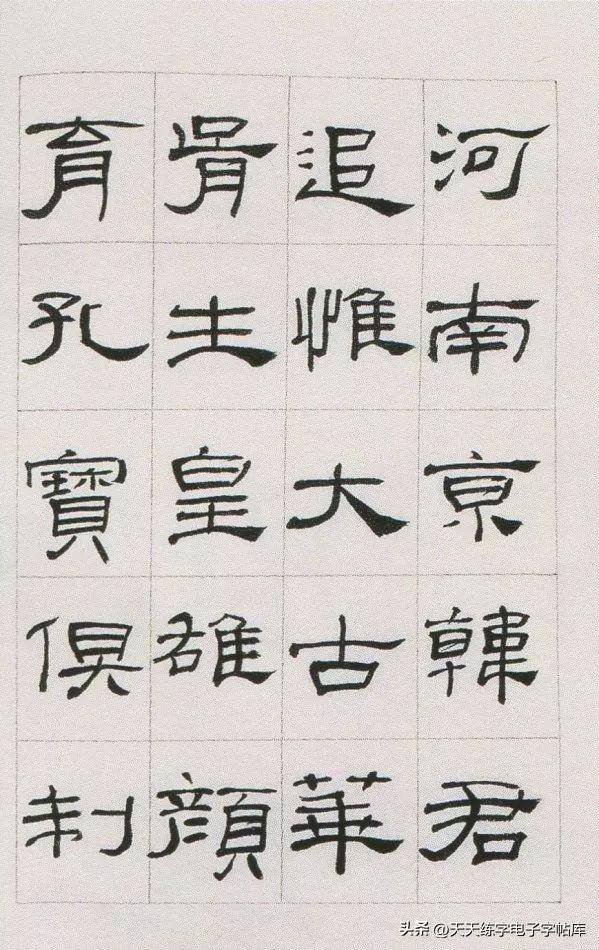 河南京韓君
追惟大古華
胥生皇雄顏
育孔寶俱制
头条 @天天练字电子字帖库